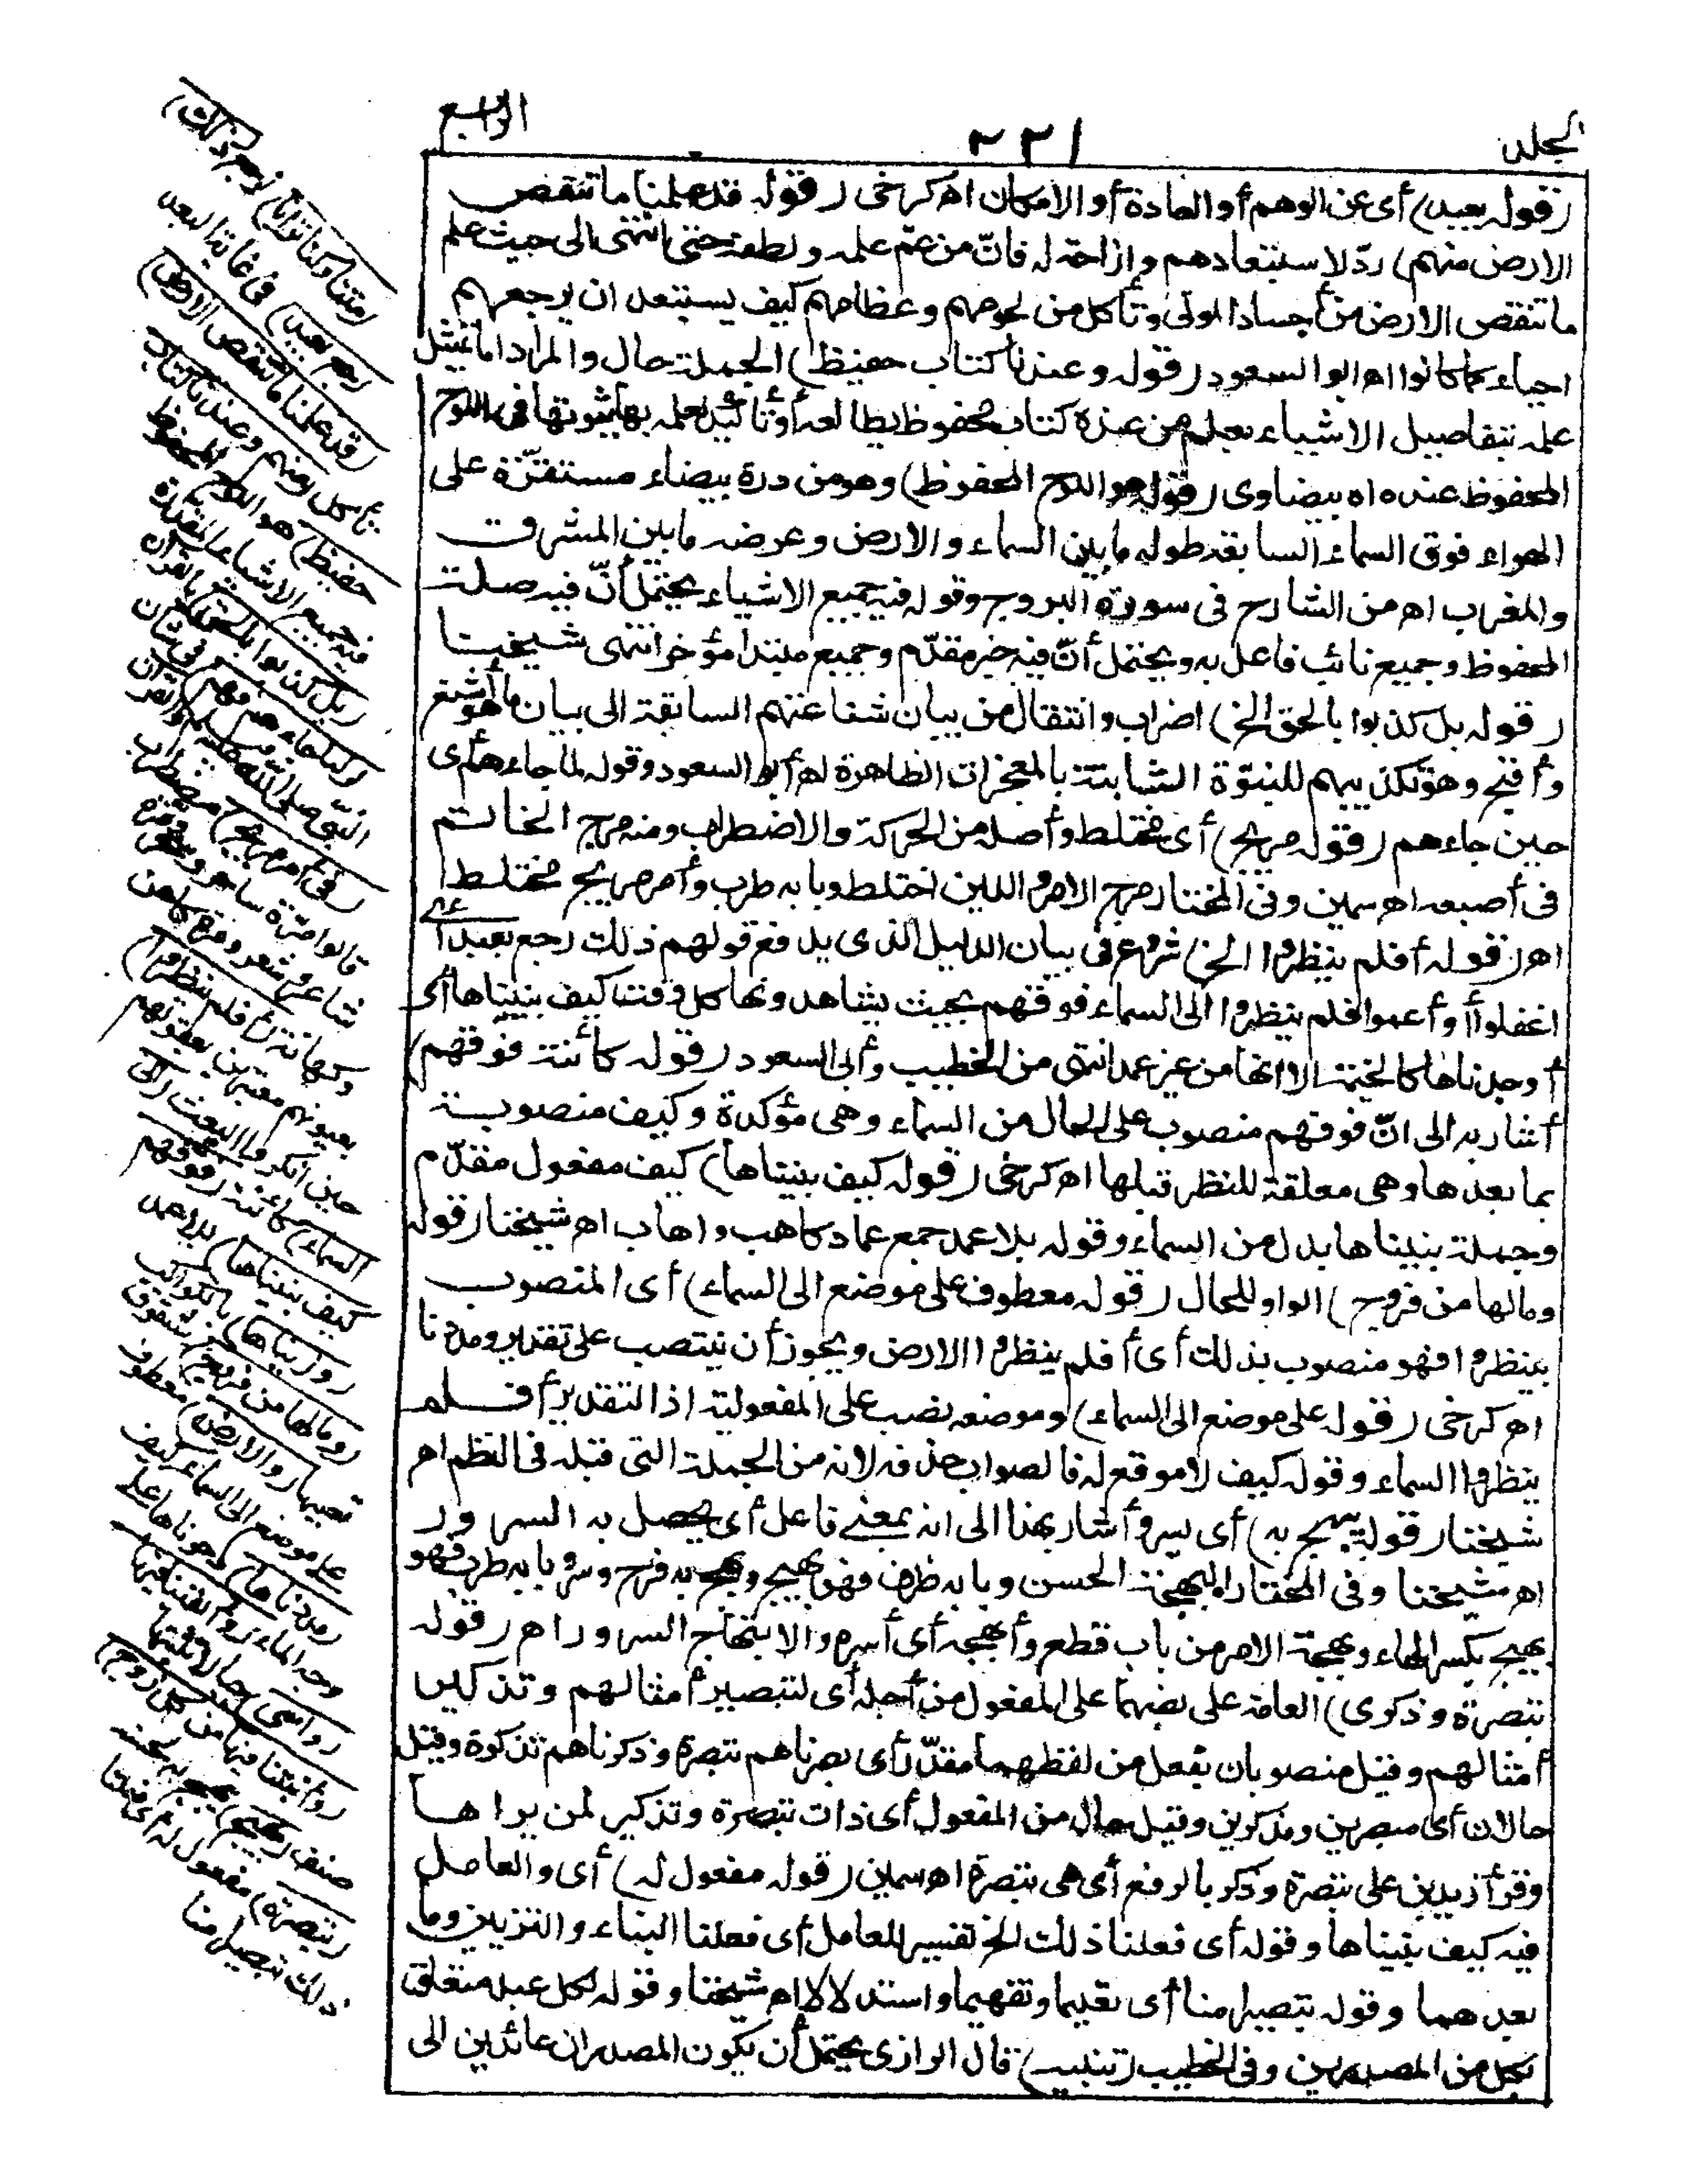 المجلد
٢٢١
الرابع
(قوله بعيد) أى عن الوهم أو العادة أو الامكان اه كرخى (قوله قد علمنا ما تنقص
الارض منهم) ردّ لاستبعادهم وازاحة له فانّ من عمّ علمه ولطفه حتى انتهى الى حيث علم
ما تنقص الارض من أجساد الموتى وتأكل من لحومهم وعظامهم كيف يستبعد ان يرجعهم
احياء كما كانوا اه ابو السعود (قوله وعندنا كتاب حفيظ) الجملة حال والمراد اما تمثيل
علمه بتفاصيل الاشياء بعلم من عنده كتاب محفوظ يطالعه أو تأكيد لعلمه بها بثبوتها فى اللوح
المحفوظ عنده اه بيضاوى (قوله هو اللوح المحفوظ) وهو من درة بيضاء مستقرّة على
الهواء فوق السماء السابعة طوله ما بين السماء والارض وعرضه ما بين المشرق
والمغرب اه من الشارح فى سورة البروج وقوله فيه جميع الاشياء يحتمل أنّ فيه صلة
المحفوظ وجميع نائب فاعل به ويحتمل أنّ فيه خبر مقدّم وجميع مبتدا مؤخر انتهى شيخنا
(قوله بل كذبوا بالحق الخ) اضراب وانتقال من بيان شناعتهم السابقة الى بيان ما هو أشنع
وأقبح وهو تكذيبهم للنبوّة الثابتة بالمعجزات الظاهرة اه أبو السعود وقوله لما جاءهم أى
حين جاءهم (قوله مريج) أى مختلط وأصله من الحركة والاضطراب ومنه مرج الخاتم
فى أصبعه اه سمين وفى المختار مرج الامر والدين اختلط وبابه طرب وأمر مريج مختلط
اه (قوله أفلم ينظروا الخ) شروع فى بيان الدليل الذى يدفع قولهم ذلك رجع بعيد أى
اغفلوا أو أعموا فلم ينظروا الى السماء فوقهم بحيث يشاهدونها كل وقت كيف بنيناها أى
أوجدناها كالخيمة الا انها من غير عمد انتهى من الخطيب وأبى السعود (قوله كائنة فوقهم)
أشار به الى انّ فوقهم منصوب على الحال من السماء وهى مؤكدة وكيف منصوبة
بما بعدها وهى معلقة للنظر قبلها اه كرخى (قوله كيف بنيناها) كيف مفعول مقدّم
وجملة بنيناها بدل من السماء وقوله بلا عمد جمع عماد كاهب واهاب اه شيخنا (قوله
وما لها من فروج) الواو للحال (قوله معطوف على موضع الى السماء) أى المنصوب
بينظروا فهو منصوب بذلك أى أفلم ينظروا الارض ويجوز أن ينتصب على تقدير ومددنا
اه كرخى (قوله على موضع الى السماء) وموضعه نصب على المفعولية اذ التقدير أفلم
ينظروا السماء وقوله كيف لا موقع له فالصواب حذفه لانه من الجملة التى قبله فى النظم اه
شيخنا (قوله يبهج به) أى يسر وأشار بهذا الى انه بمعنى فاعل أى يحصل به السرور
اه شيخنا وفى المختار البهجة الحسن وبابه ظرف فهو بهيج وبهج به فرح وسر وبابه طرب فهو
بهيج بكسر الهاء وبهجة الامر من باب قطع وأبهجه أى أسره والابتهاج السرور اه (قوله
تبصرة وذكرى) العامة على نصبهما على المفعول من أجله أى لتبصير أمثالهم وتذكير
أمثالهم وقيل منصوبان بفعل من لفظهما مقدّر أى بصرناهم تبصرة وذكرناهم تذكرة وقيل
حالان أى مبصرين ومذكرين وقيل حال من المفعول أى ذات تبصرة وتذكير لمن يراها
وقرأ زيد بن على تبصرة وذكر بالرفع أى هى تبصرة اه سمين (قوله مفعول له) أى والعامل
فيه كيف بنيناها وقوله أى فعلنا ذلك الخ تفسير للعامل أى فعلنا البناء والتزيين وما
بعدهما وقوله تبصيرا منا أى تعليما وتفهيما واستدلالا اه شيخنا وقوله لكل عبد متعلق
بكل من المصدرين وفى الخطيب (تنبيه) قال الرازى يحتمل أن يكون المصدران عائدين الى
(متنا وكنا ترابا) نرجع (ذلك
رجع بعيد) فى غاية البعد
(قد علمنا ما تنقص الارض)
تأكل (منهم وعندنا كتاب
حفيظ) هو اللوح المحفوظ
فيه جميع الاشياء المقدرة
(بل كذبوا بالحق) بالقرآن
(لما جاءهم فهم) فى شأن
النبى صلى الله عليه وسلم والقرآن
(فى أمر مريج) مضطرب
قالوا مرّة ساحر وسحر ومرّة
شاعر وشعر ومرة كاهن
وكهانة (أفلم ينظروا)
بعيونهم معتبرين بعقولهم
حين انكروا البعث (الى
السماء) كائنة (فوقهم
كيف بنيناها) بلا عمد
(وزيناها) بالكواكب
(وما لها من فروج) شقوق
تعيبها (والارض) معطوف
على موضع الى السماء كيف
(مددناها) دحوناها على
وجه الماء (وألقينا فيها
رواسى) جبالا تثبتها
(وأنبتنا فيها من كل زوج)
صنف (بهيج) يبهج به لحسنه
(تبصرة) مفعول له أى فعلنا
ذلك تبصيرا منا